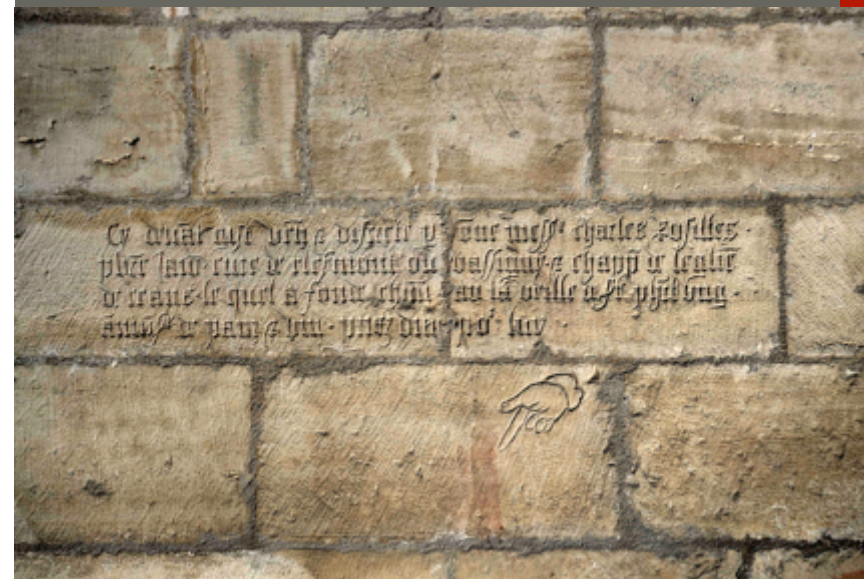 Cy devāt gist veñ & discrete p̱sone messͬ charles zosilles
pb̄re jaīs cure de clesmont ou bassigny & chapp̄ de leglīe
de ceans le quel a fonde ch̄ūn an la veille st ph̄e ung
de pain & vin priez dieu poͬ luy